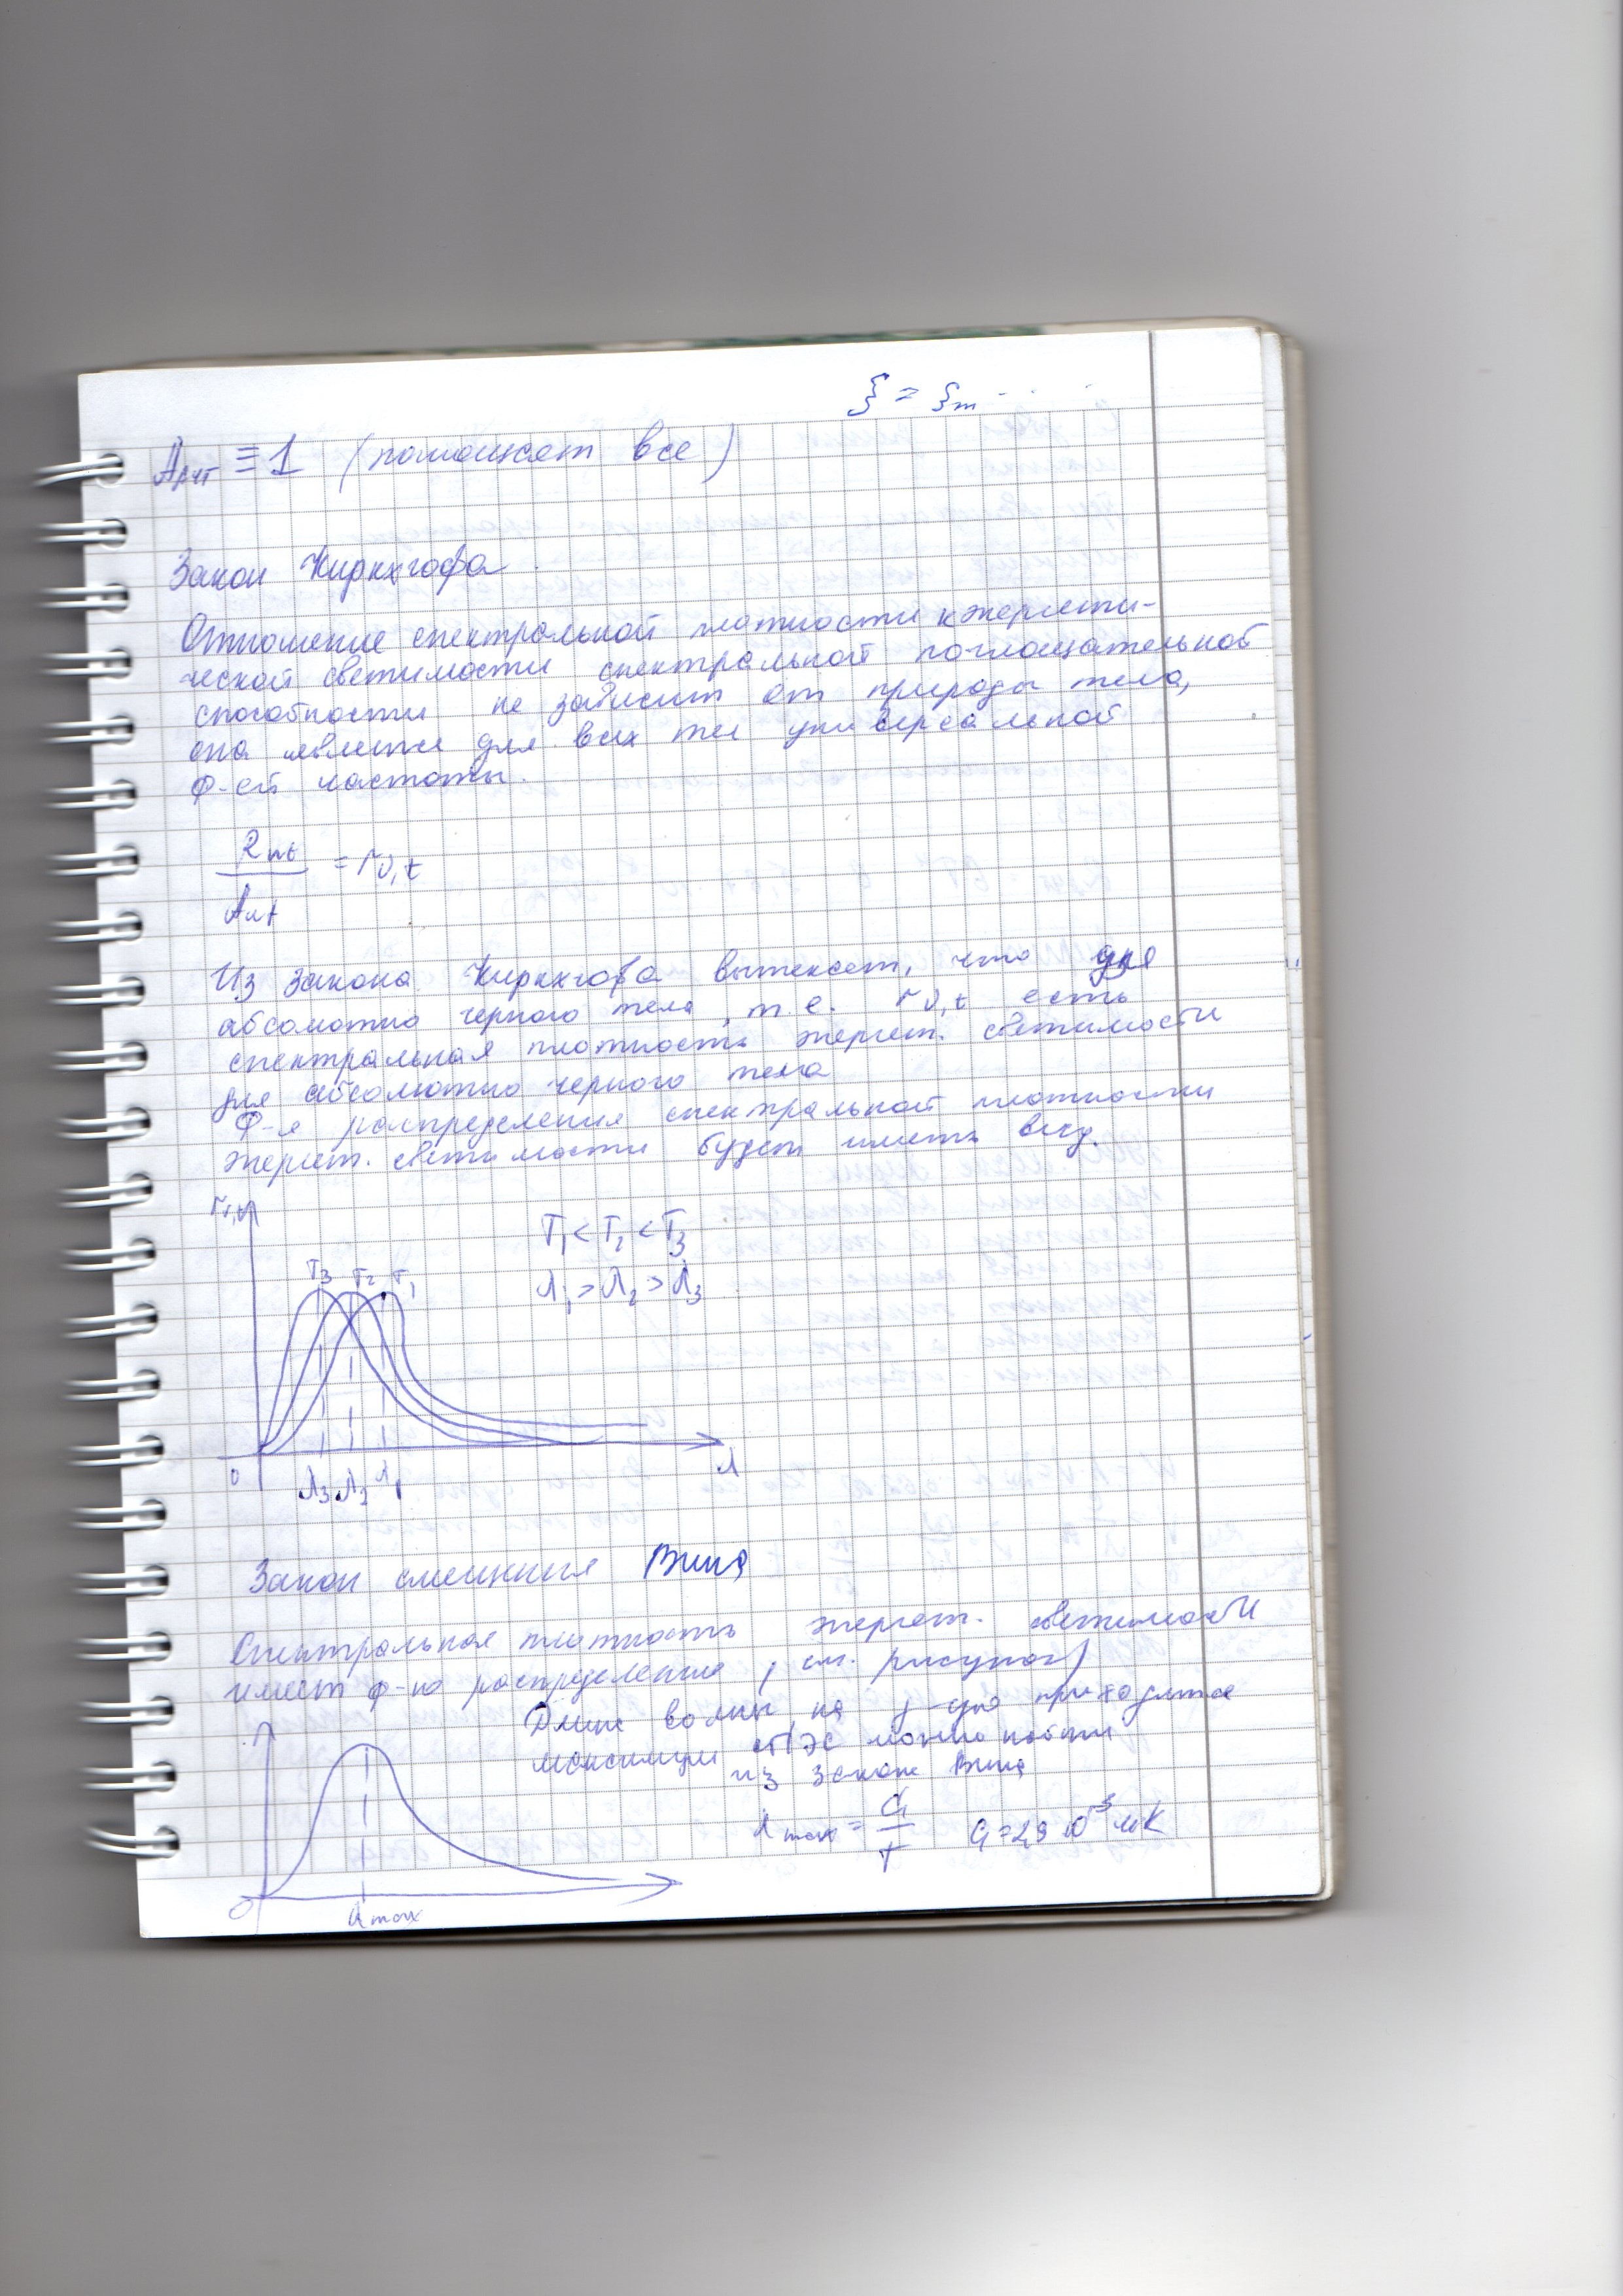 ξ = ξm
Aрчт ≡ 1 (поглощает все)
Закон Кирхгофа.
Отношение спектральной плотности к энергети-
ческой светимости спектральной поглощательной
способности не зависит от природы тела,
она является для всех тел универсальной
ф-ей частоты.
= rν,t
Из закона Кирхгофа вытекает, что для
абсолютно черного тела, т.е. rν,t есть
спектральная плотность энергет. светимости
для абсолютно черного тела
Ф-я распределения спектральной плотности
энергет. светимости будет иметь вид.
T₁ < T₂ < T₃
λ₁ > λ₂ > λ₃
T₃ T₂ T₁
0 λ₃ λ₂ λ₁ λ
Закон смещения Вина
Спектральная плотность энергет. светимости
имеет ф-ю распределения, см. рисунок)
Длине волны, на которую приходится
максимум СПЭС можно найти
из закона Вина
λmax = C₁/T C₁=2,9 10⁻³ мК
0 λmax